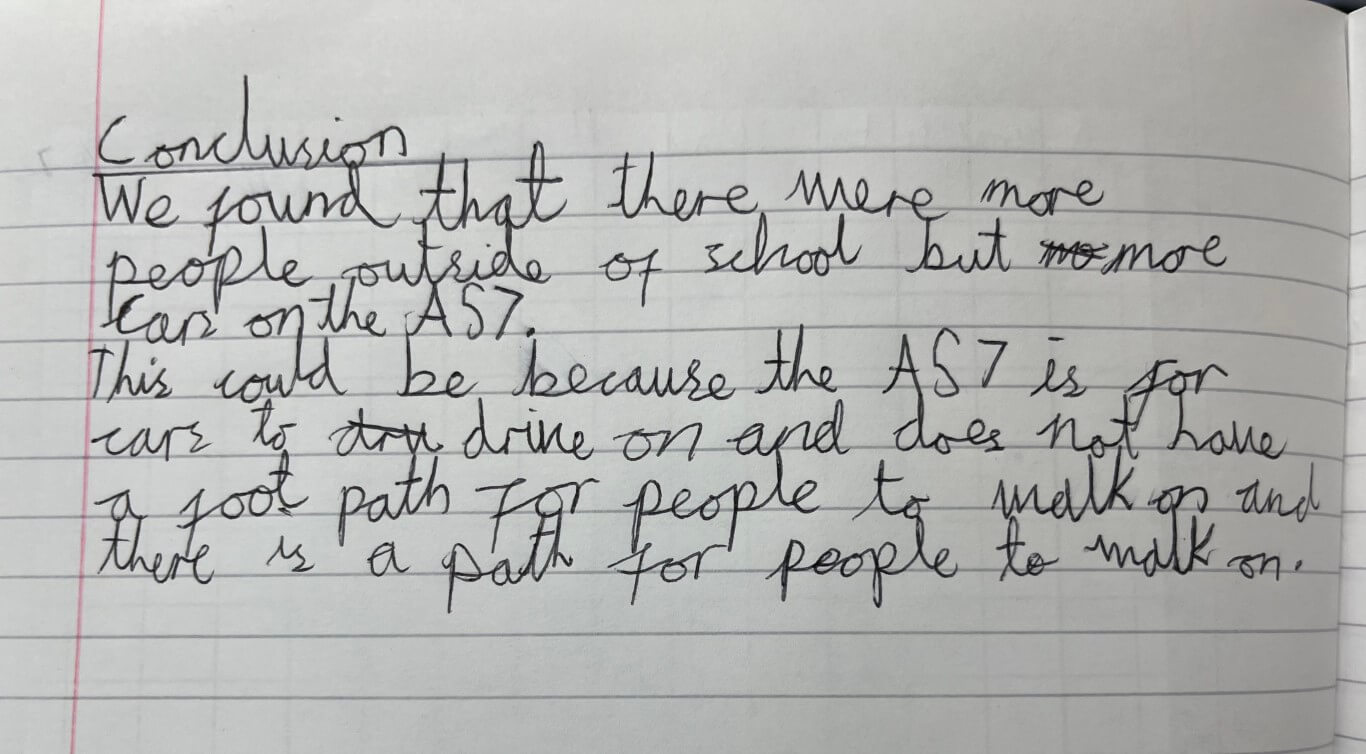 Conclusion
We found that there were more
people outside of school but more
cars on the A57.
This could be because the A57 is for
cars to drive on and does not have
a foot path for people to walk on and
there is a path for people to walk on.